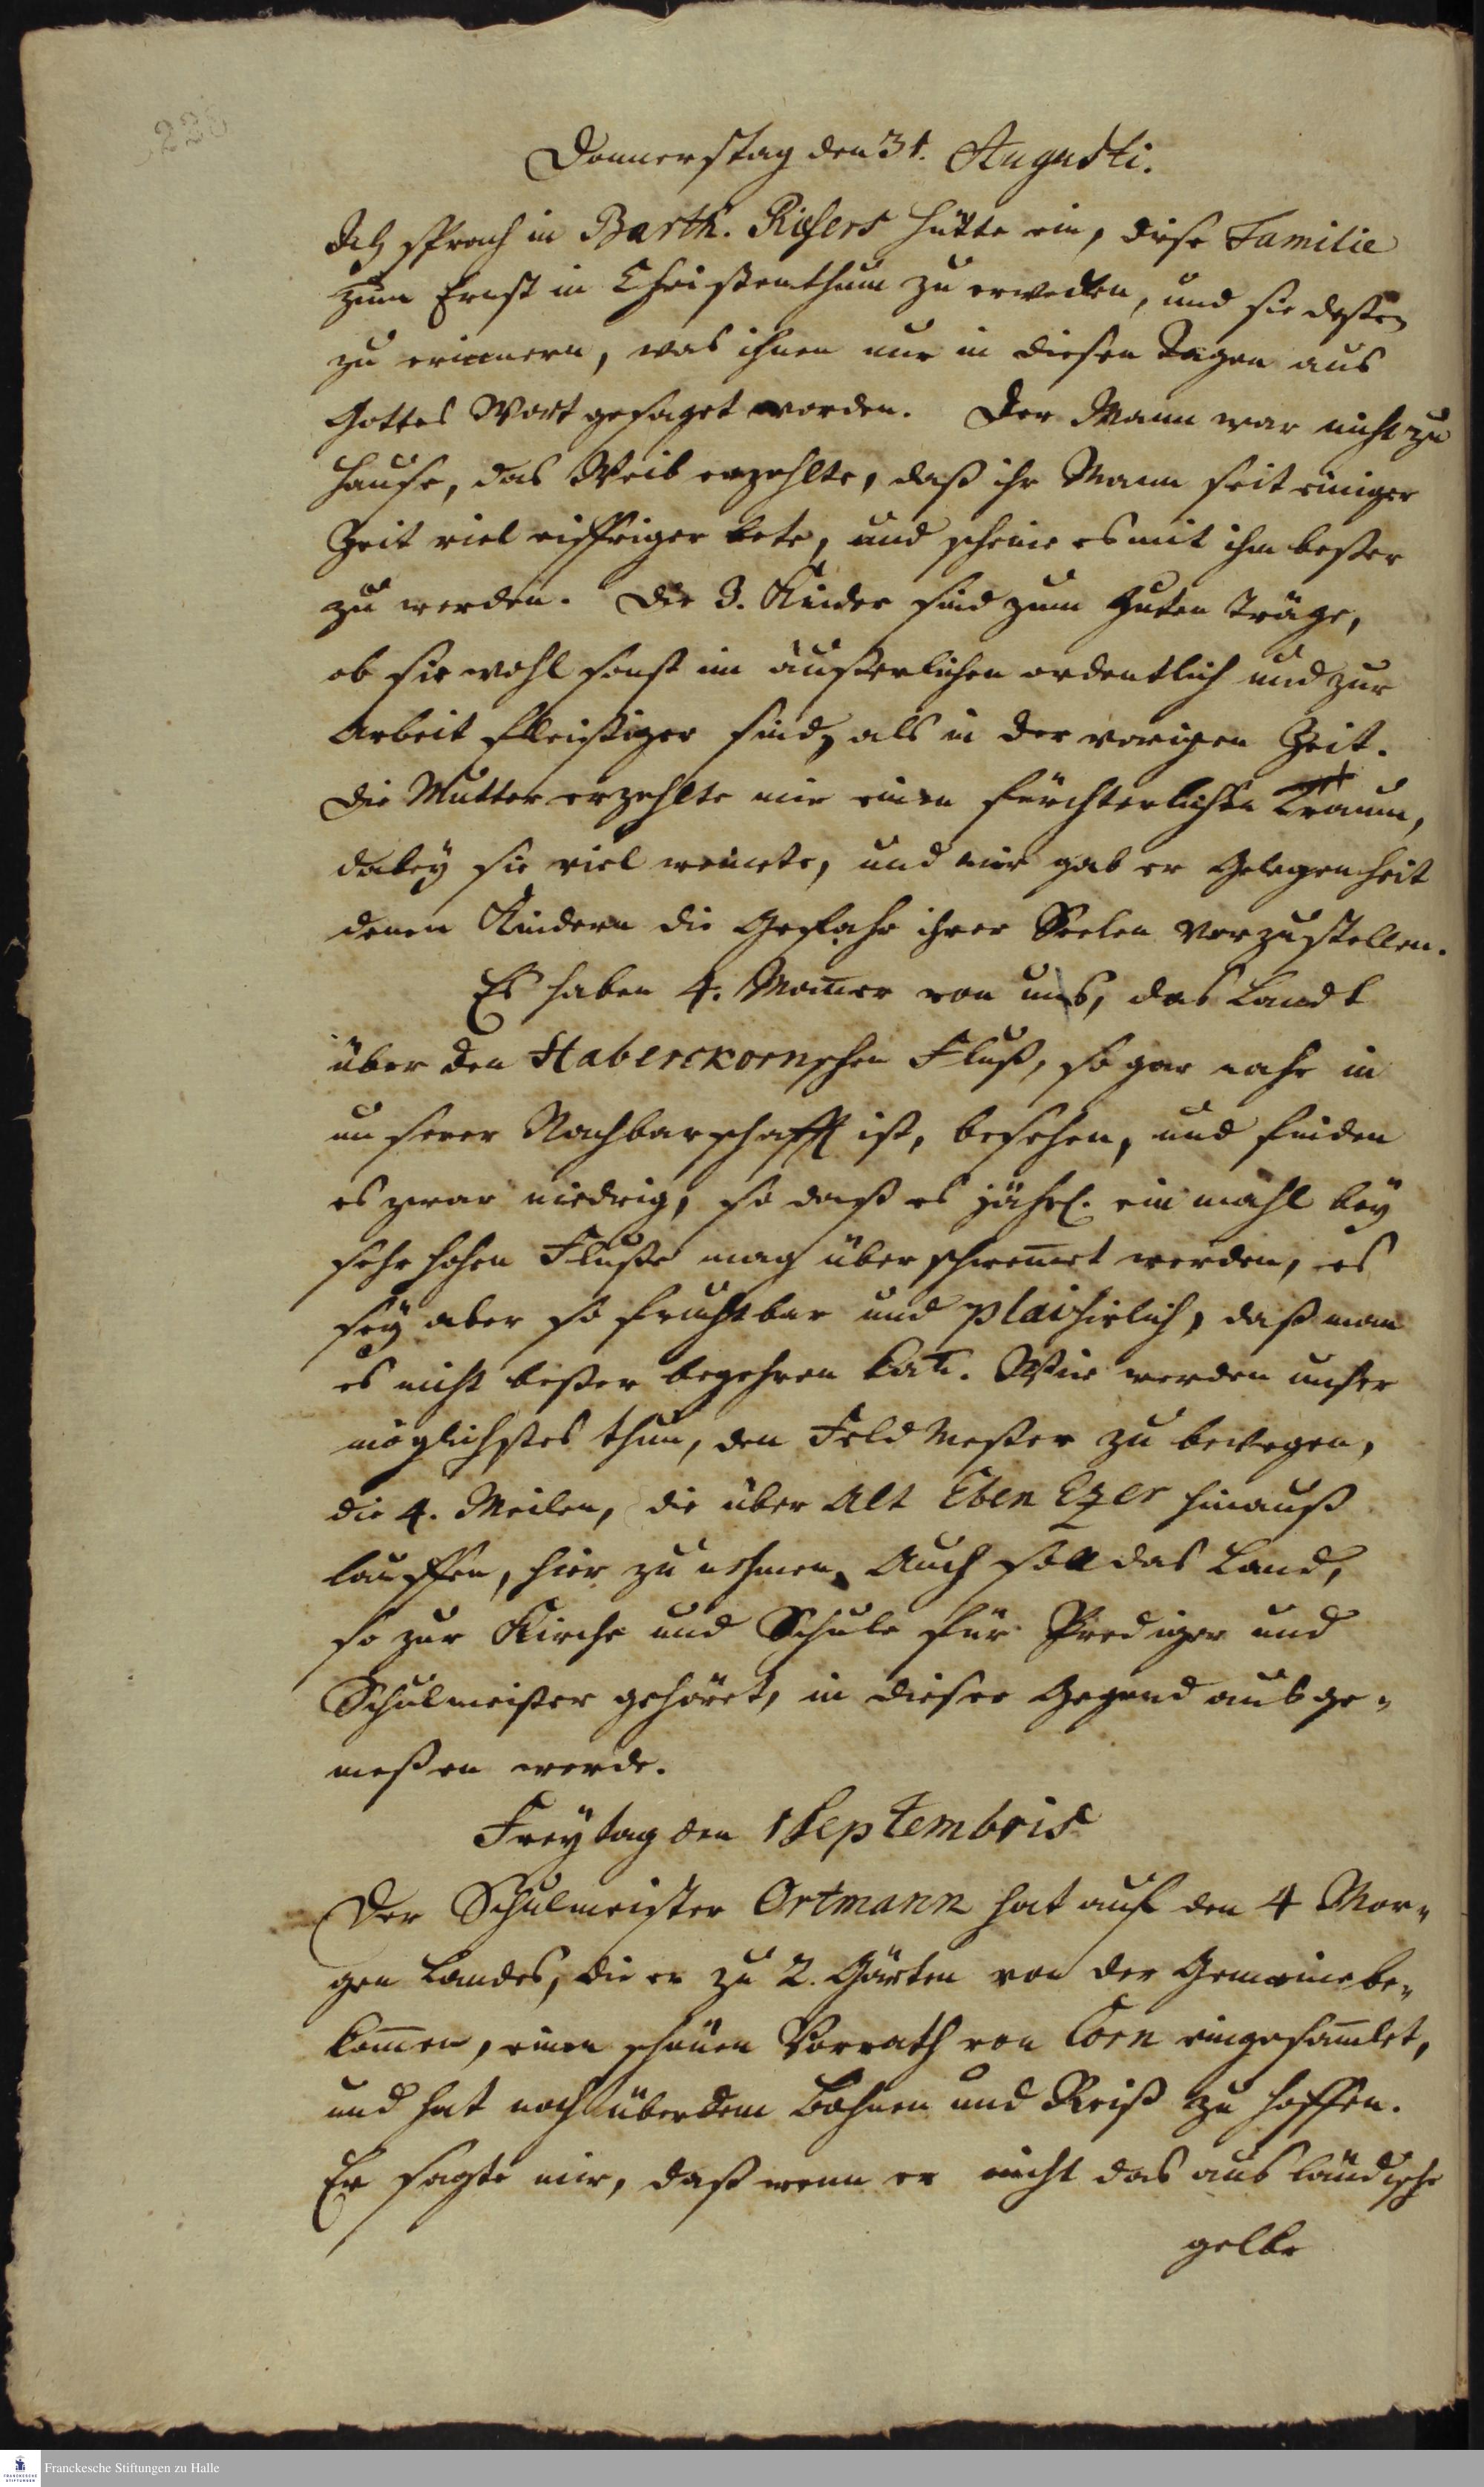 226
Donnerstag den 31. Augusti.
Ich sprach in Barth. Riesers Hütte ein, diese Familie
zum Ernst in Christenthum zu erwecken, und sie deßen
zu erinnern, was ihnen nur in diesen Tagen aus
Gottes Wort gesaget worden. Der Mann war nicht zu
Hause, das Weib erzehlte, daß ihr Mann seit einiger
Zeit viel eiffriger bete, und scheine es mit ihm beßer
zu werden. Die 3. Kinder sind zum Guten träge,
ob sie wohl sonst im äußerlichen ordentlich und zur
Arbeit fleißiger sind, als in der vorigen Zeit.
Die Mutter erzehlte mir einen fürchterlichen Traum,
dabey sie viel weinete, und mir gab er Gelegenheit
denen Kindern die Gefahr ihrer Seelen vorzustellen.
Es haben 4. Männer von uns, das Landt
über den Haberekornschen Fluß, so gar nahe in
unserer Nachbarschafft ist, besehen, und finden
es zwar niedrig, so daß es jährl. ein mahl bey
sehr hohen Fluße mag überschwem̅et werden, es
sey aber so fruchtbar und plaisirlich, daß man
es nicht beßer begehren kan̅. Wir werden unser
möglichstes thun, den Feld Meßer zu bewegen,
die 4. Meilen, die über Alt Eben Ezer hinauß
lauffen, hier zu nehmen. Auch soll das Land,
so zur Kirche und Schule für Prediger und
Schulmeister gehöret, in dieser Gegend ausge-
meßen werde.
Freytag den 1 Septembris
Der Schulmeister Ortmann hat auf den 4 Mor-
gen Landes, die er zu 2. Gärten von der Gemeine be-
kom̅en, einen schönen Vorrath von Corn eingesam̅let,
und hat noch überdem Bohnen und Reiß zu hoffen.
Er sagte mir, daß wenn er nicht das ausländische
gelbe
Franckesche Stiftungen zu Halle